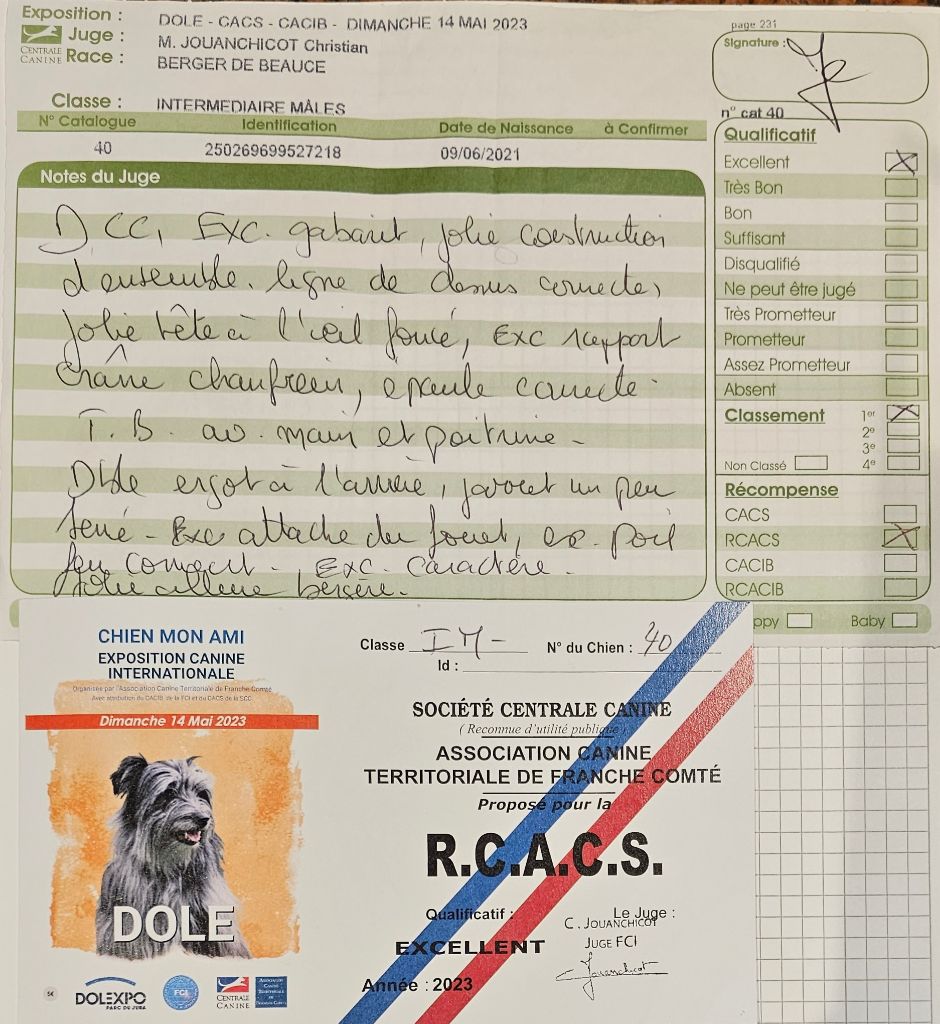 Exposition : DOLE - CACS - CACIB - DIMANCHE 14 MAI 2023
page 231
Juge : M. JOUANCHICOT Christian
CENTRALE CANINE
Race : BERGER DE BEAUCE
Signature :
Classe : INTERMEDIAIRE MÂLES
n° cat 40
N° Catalogue Identification Date de Naissance à Confirmer
40 250269699527218 09/06/2021
Notes du Juge
D CC, Exc. gabarit, jolie construction
d'ensemble. ligne de dessus correcte,
Jolie tête à l'œil foncé, Exc rapport
crâne chanfrein, epaule correcte.
T.B. av. main et poitrine -
Dble ergot à l'arrière, jarret un peu
serré - Exc attache du fouet, ex. poil
feu correct - Exc. Caractère.
Jolie allure bergère.
Qualificatif
Excellent
Très Bon
Bon
Suffisant
Disqualifié
Ne peut être jugé
Très Prometteur
Prometteur
Assez Prometteur
Absent
Classement 1er
2e
3e
Non Classé 4e
Récompense
CACS
RCACS
CACIB
RCACIB
ppy Baby
CHIEN MON AMI
EXPOSITION CANINE
INTERNATIONALE
Organisée par l'Association Canine Territoriale de Franche Comté
Avec attribution du CACIB de la FCI et du CACS de la SCC
Dimanche 14 Mai 2023
DOLE
5€
DOLEXPO
PARC DU JURA
FCI
CENTRALE
CANINE
ASSOCIATION
CANINE
TERRITORIALE
DE FRANCHE COMTÉ
Classe IM - N° du Chien : 40
Id :
SOCIÉTÉ CENTRALE CANINE
( Reconnue d'utilité publique )
ASSOCIATION CANINE
TERRITORIALE DE FRANCHE COMTÉ
Proposé pour la
R.C.A.C.S.
Qualificatif : Le Juge :
C. JOUANCHICOT
EXCELLENT JUGE FCI
Jouanchicot
Année : 2023